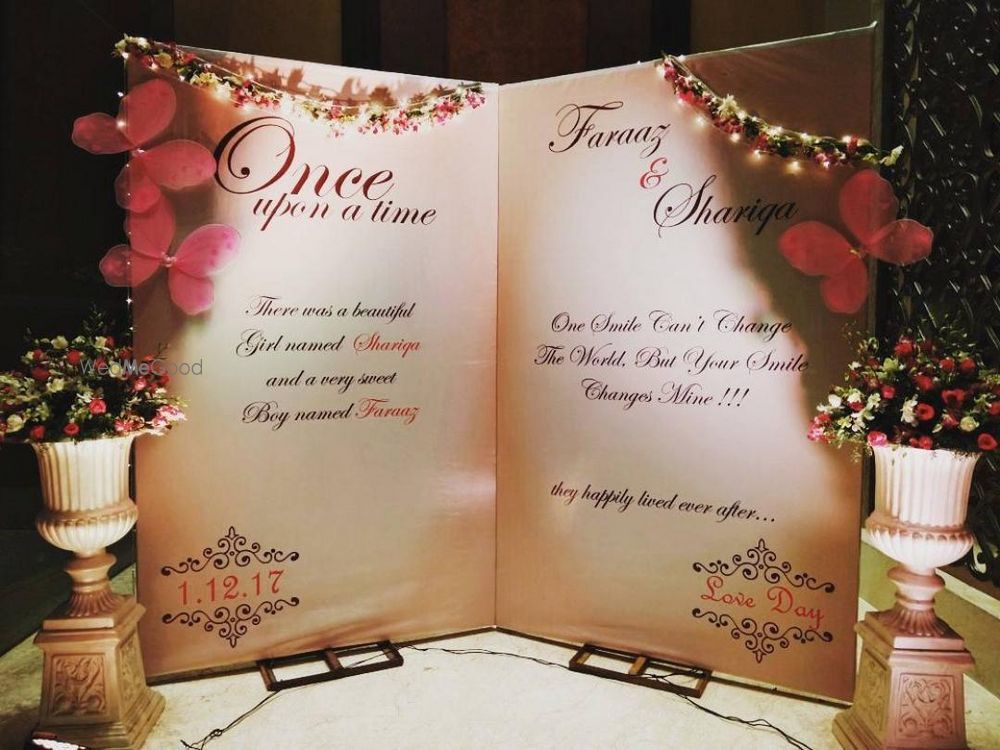 Once
upon a time
There was a beautiful
Girl named Shariqa
and a very sweet
Boy named Faraaz
1.12.17
Faraaz
&
Shariqa
One Smile Can't Change
The World, But Your Smile
Changes Mine !!!
they happily lived ever after...
Love Day
WedMeGood